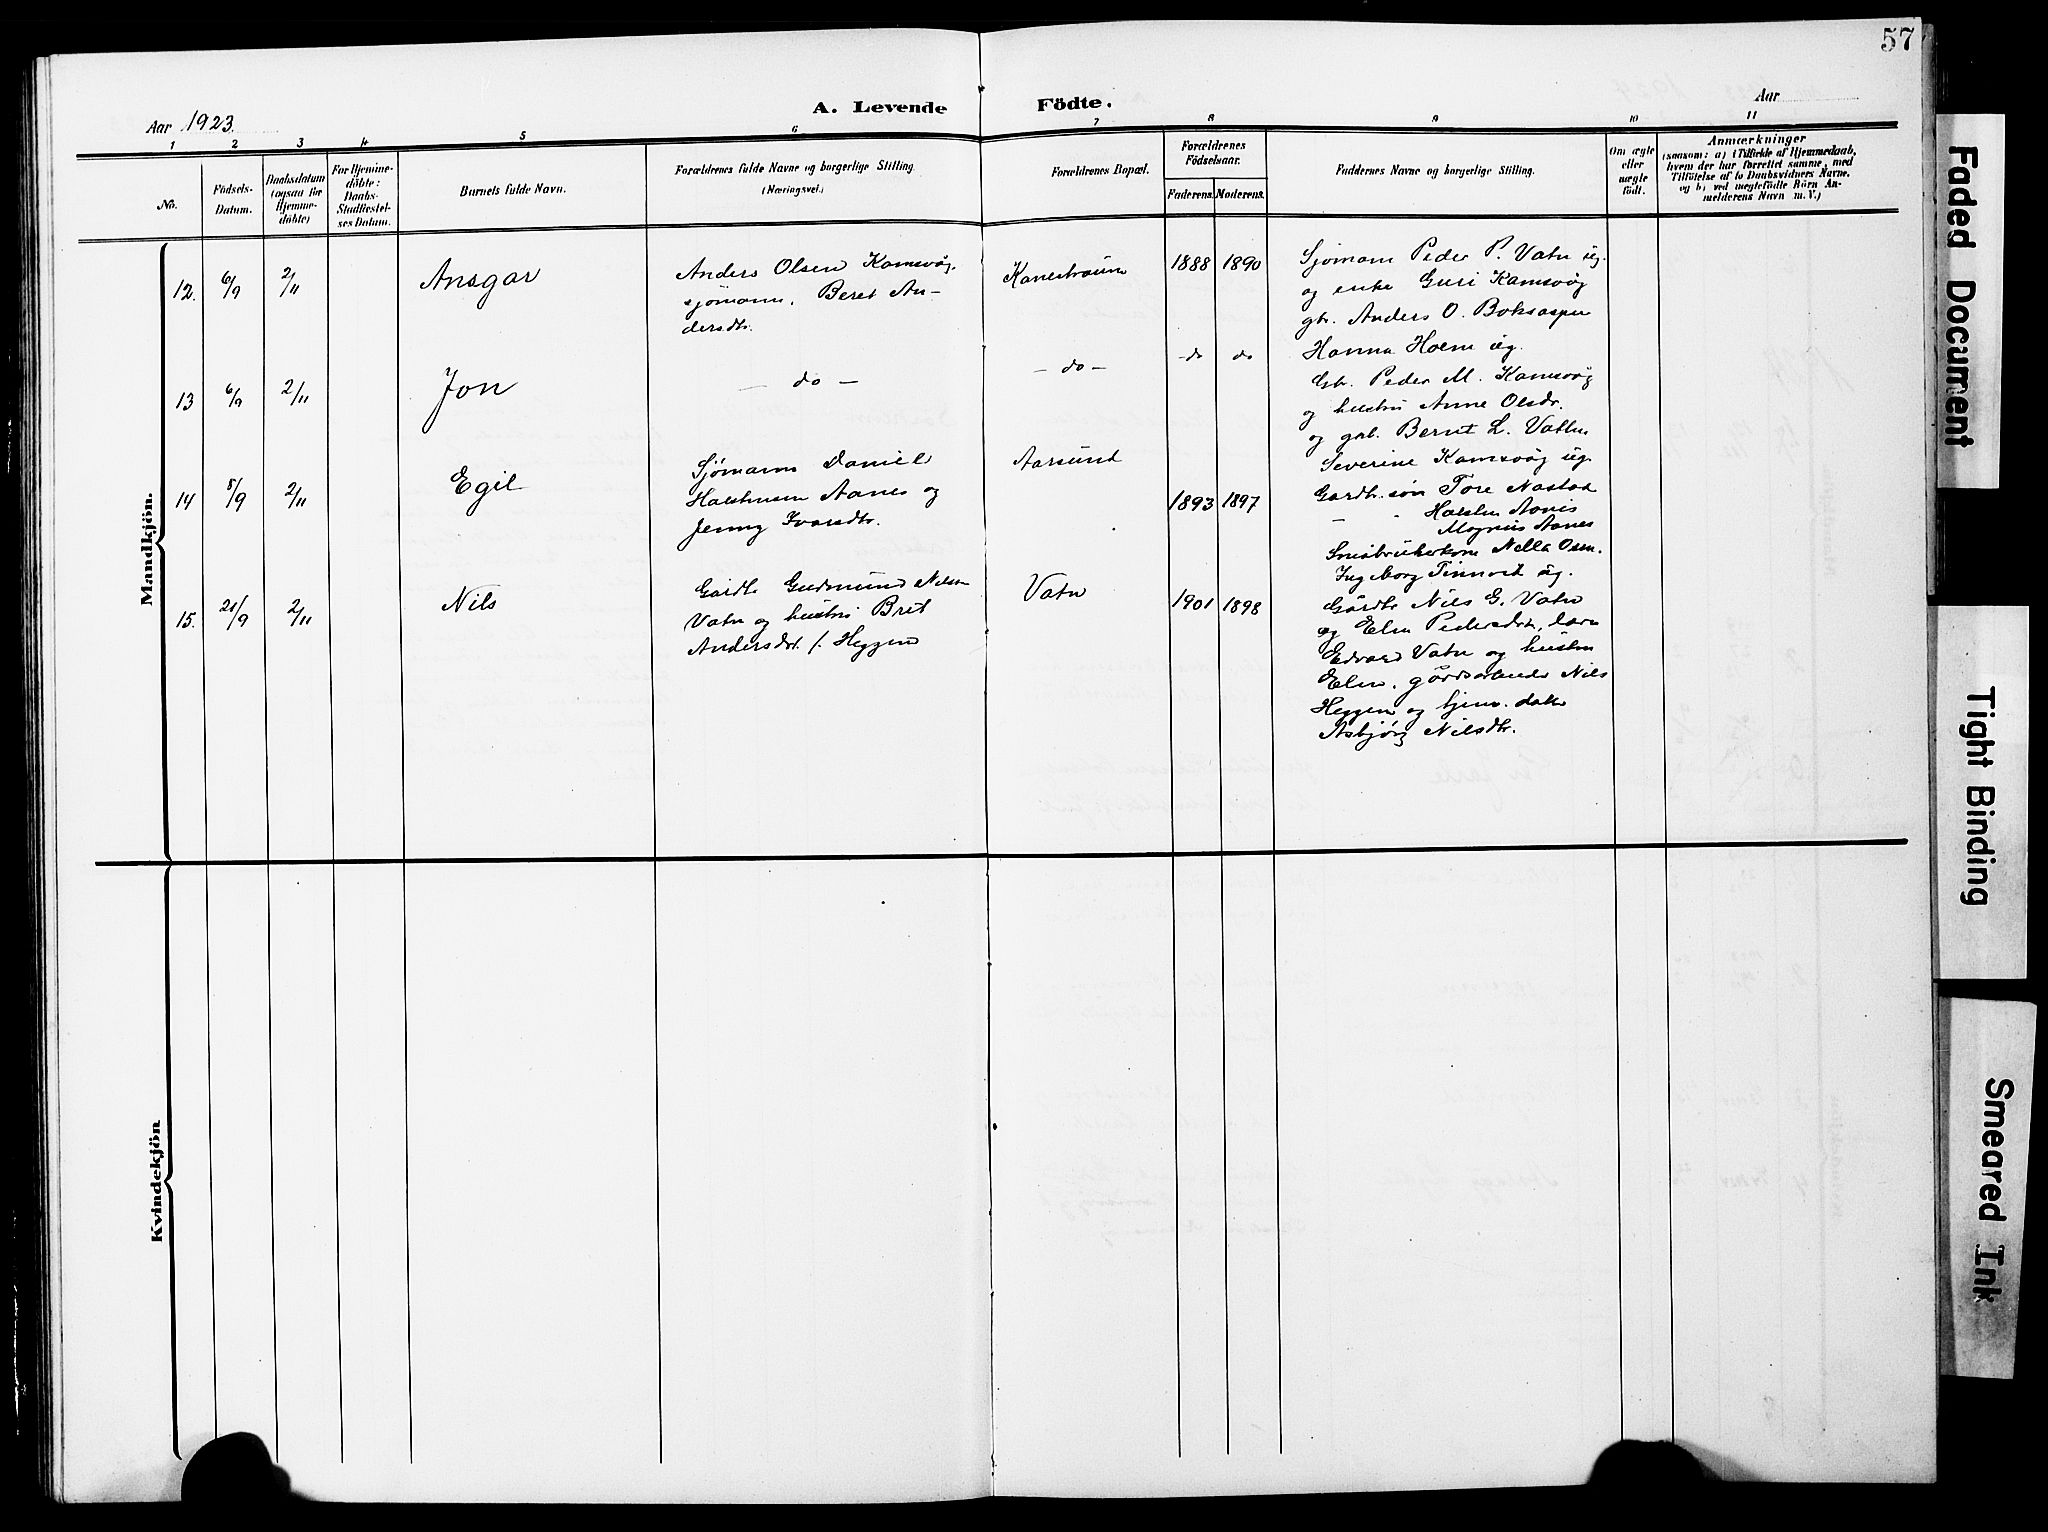 57
A. Levende Födte.
Aar 1923.
Aar
1 2 3 4 5 6 7 8 9 10 11
No.
Födsels-
Datum.
Daabsdatum
(ogsaa for
Hjemme-
döbte)
For Hjemme-
döbte:
Daabs-
Stadfæstel-
ses Datum.
Barnets fulde Navn.
Forældrenes fulde Navne og borgerlige Stilling.
(Næringsvei.)
Forældrenes Bopæl.
Forældrenes
Födselsaar.
Faderens. Moderens.
Faddernes Navne og borgerlige Stilling.
Om ægte
eller
uægte
født.
Anmærkninger
(saasom: a) i Tilfælde af Hjemmedaab,
hvem der har forrettet samme, med
Tilföielse af to Daabsvidners Navne,
og b) ved uægtefödte Börn An-
melderens Navn m. V.)
Mandkjön.
12. 6/9 2/11 Ansgar
Anders Olsen Kamsvåg.
sjømann. Beret An-
dersdtr.
Kanestraum
1888 1890
Sjømann Peder P. Vatn ug.
og enke Guri Kamsvåg
gbr. Anders O. Boksasper
Hanna Holm ug.
13 6/9 2/11 Jon
— do —
— do —
— do do
Gbr. Peder M. Kamsvåg
og hustru Anne Olsdr.
og grb. Bernt L. Vatn
Severine Kamsvåg ug.
14 8/9 2/11 Egil
Sjømann Daniel
Halstensen Aanes og
Jenny Ivarsdtr.
Aarsund
1893 1897
Gardbr. søn Tore Nastad
Halsten Aanes
Magnus Aanes
Småbrukerkone Nella Osen.
Ingeborg Tinnvik ug.
15. 21/9 2/11 Nils
Gårdbr Gudmund Nilsen
Vatn og hustru Brit
Andersdtr. f. Heggem
Vatn
1901 1898
Gårdbr Nils G. Vatn
og Elen Pedersdtr, lærer
Edvard Vatn og hustru
Elen, gårdsarbeider Nils
Heggem og hjemv. datter
Asbjørg Nilsdtr.
Kvindekjön
Faded Document
Tight Binding
Smeared Ink